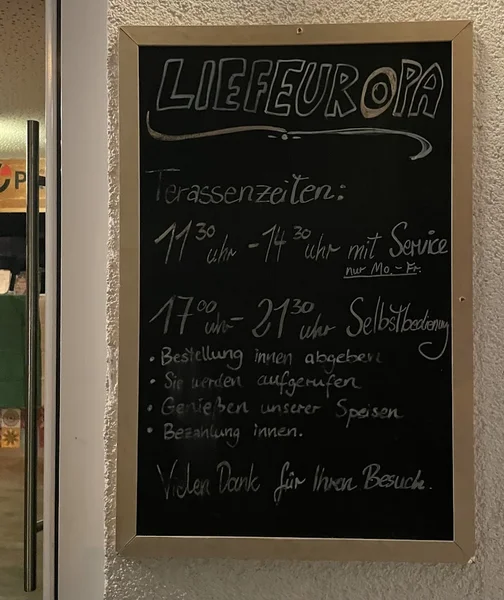 LIEFEUROPA
Terassenzeiten:
11³⁰ uhr - 14³⁰ uhr mit Service
nur Mo.-Fr.
17⁰⁰ uhr - 21³⁰ uhr Selbstbedienung
• Bestellung innen abgeben
• Sie werden aufgerufen
• Genießen unserer Speisen
• Bezahlung innen.
Vielen Dank für Ihren Besuch.